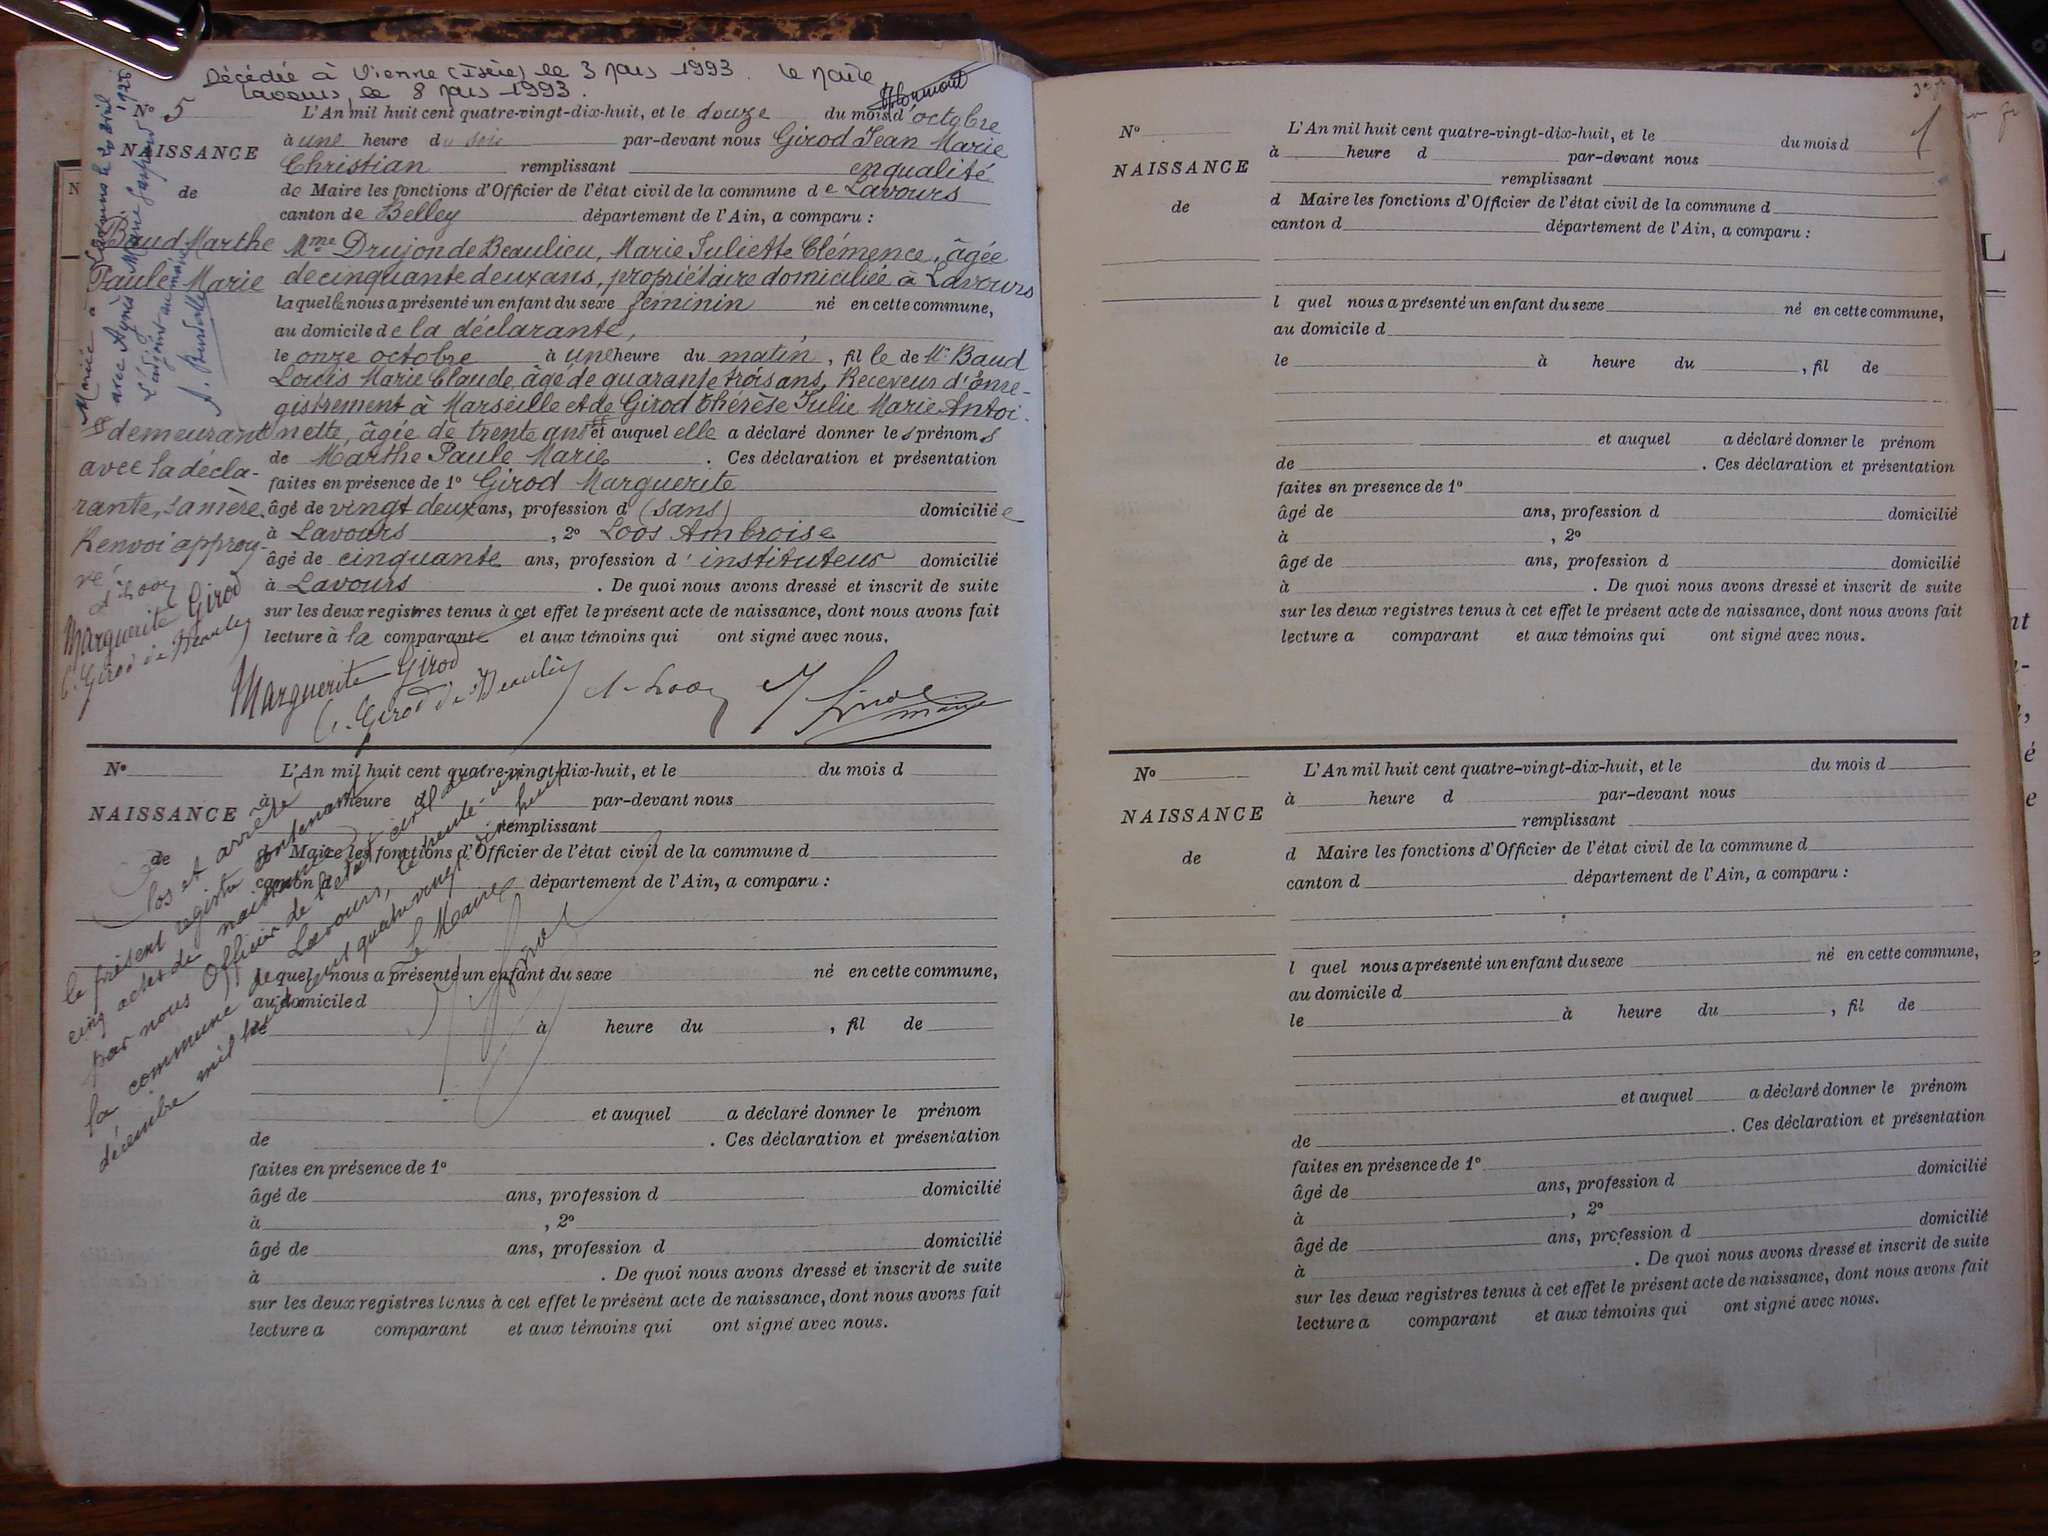 Décédée à Vienne (Isère) le 3 mars 1993. Le maire
Lavours, le 8 mars 1993.
N° 5
NAISSANCE
de
Baud Marthe
Paule Marie
L'An mil huit cent quatre-vingt-dix-huit, et le douze du mois d'octobre
à une heure du soir par-devant nous Girod Jean Marie
Christian remplissant en qualité
de Maire les fonctions d'Officier de l'état civil de la commune de Lavours
canton de Belley département de l'Ain, a comparu :
Mme Drujon de Beaulieu, Marie Juliette Clémence, âgée
de cinquante deux ans, propriétaire domiciliée à Lavours
laquelle nous a présenté un enfant du sexe féminin né en cette commune,
au domicile de la déclarante,
le onze octobre à une heure du matin, fille de Mr Baud
Louis Marie Claude, âgé de quarante trois ans, Receveur d'enre-
gistrement à Marseille et de Girod Thérèse Julie Marie Antoi-
nette, âgée de trente ans et auquel elle a déclaré donner les prénoms
de Marthe Paule Marie . Ces déclaration et présentation
faites en présence de 1° Girod Marguerite
âgé de vingt deux ans, profession d (sans) domiciliée
à Lavours , 2° Loos Ambroise
âgé de cinquante ans, profession d'instituteur domicilié
à Lavours . De quoi nous avons dressé et inscrit de suite
sur les deux registres tenus à cet effet le présent acte de naissance, dont nous avons fait
lecture à la comparante et aux témoins qui ont signé avec nous.
Marguerite Girod
C. Girod de Beaulieu
A. Loos
J Girod
maire
demeurant
avec la décla-
rante, sa mère.
Renvoi approu-
vé
A. Loos
Marguerite Girod
C. Girod de Beaulieu
Mariée à
le 20 avril 1928
avec Agnès Marie Gaspard
L'adjoint au maire
N°
NAISSANCE
de
L'An mil huit cent quatre-vingt-dix-huit, et le du mois d
à heure d par-devant nous
remplissant
d Maire les fonctions d'Officier de l'état civil de la commune d
canton d département de l'Ain, a comparu :
lequel nous a présenté un enfant du sexe né en cette commune,
au domicile d
le à heure du , fil de
et auquel a déclaré donner le prénom
de . Ces déclaration et présentation
faites en présence de 1°
âgé de ans, profession d domicilié
à , 2°
âgé de ans, profession d domicilié
à . De quoi nous avons dressé et inscrit de suite
sur les deux registres tenus à cet effet le présent acte de naissance, dont nous avons fait
lecture a comparant et aux témoins qui ont signé avec nous.
Clos et arrêté
le présent registre contenant
cinq actes de naissance
par nous Officier de l'état civil de
la commune de Lavours, le trente-un
décembre mil huit cent quatre vingt dix huit
Le Maire
J Girod
N°
NAISSANCE
de
L'An mil huit cent quatre-vingt-dix-huit, et le du mois d
à heure d par-devant nous
remplissant
d Maire les fonctions d'Officier de l'état civil de la commune d
canton d département de l'Ain, a comparu :
l quel nous a présenté un enfant du sexe né en cette commune,
au domicile d
le à heure du , fil de
et auquel a déclaré donner le prénom
de . Ces déclaration et présentation
faites en présence de 1°
âgé de ans, profession d domicilié
à , 2°
âgé de ans, profession d domicilié
à . De quoi nous avons dressé et inscrit de suite
sur les deux registres tenus à cet effet le présent acte de naissance, dont nous avons fait
lecture a comparant et aux témoins qui ont signé avec nous.
N°
NAISSANCE
de
L'An mil huit cent quatre-vingt-dix-huit, et le du mois d
à heure d par-devant nous
remplissant
d Maire les fonctions d'Officier de l'état civil de la commune d
canton d département de l'Ain, a comparu :
l quel nous a présenté un enfant du sexe né en cette commune,
au domicile d
le à heure du , fil de
et auquel a déclaré donner le prénom
de . Ces déclaration et présentation
faites en présence de 1°
âgé de ans, profession d domicilié
à , 2°
âgé de ans, profession d domicilié
à . De quoi nous avons dressé et inscrit de suite
sur les deux registres tenus à cet effet le présent acte de naissance, dont nous avons fait
lecture a comparant et aux témoins qui ont signé avec nous.